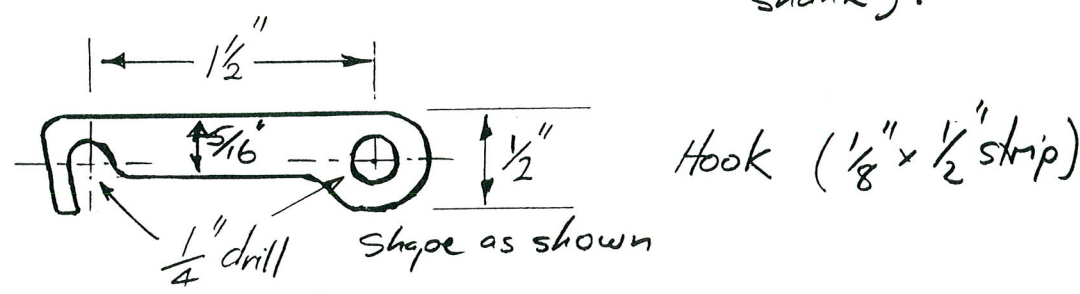 shank).
1 1/2"
5/16"
1/2"
Hook (1/8" x 1/2" strip)
1/4" drill
Shape as shown